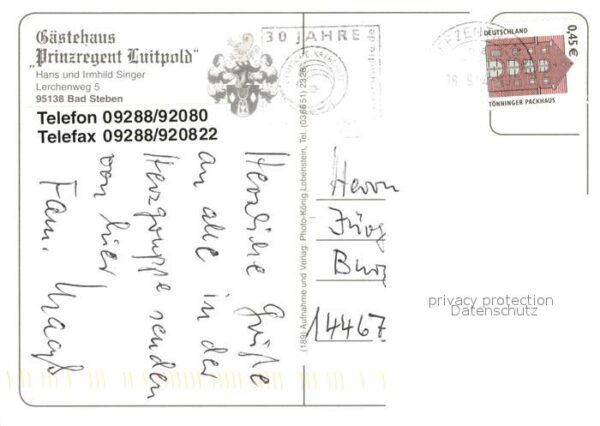 Gästehaus
"Prinzregent Luitpold"
Hans und Irmhild Singer
Lerchenweg 5
95138 Bad Steben
Telefon 09288/92080
Telefax 09288/920822
30 JAHRE
DEUTSCHLAND
0,45€
TÖNNINGER PACKHAUS
(189) Aufnahme und Verlag: Photo-König Lobenstein, Tel. (036651) 2328
Herzliche Grüße
an alle in der
Herzgruppe senden
von hier
Fam.
Herrn
Jürg
Burg
14467
privacy protection
Datenschutz